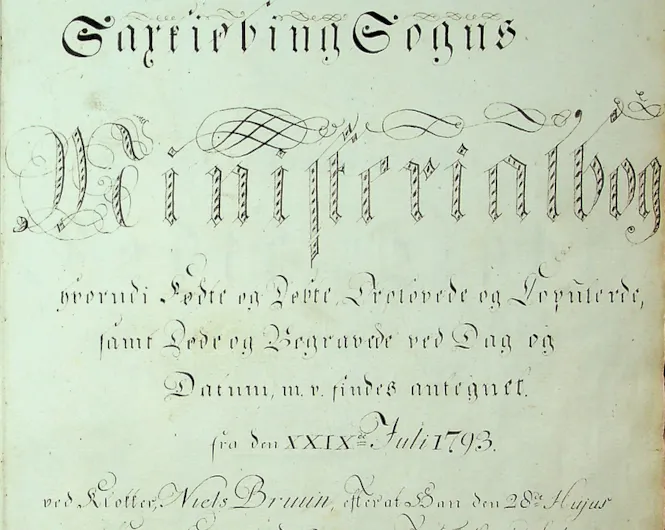 Saxkiøbing Sogns
Ministerialbog
hvorudi Fødte og Døbte, Troлovede og Copulerede,
samt Døde og Begravede ved Dag og
Datum, m. v. findes antegnet.
fra den XXIXde Julii 1793.
ved Klokker, Niels Bruun, efter at Han den 28de Hujus